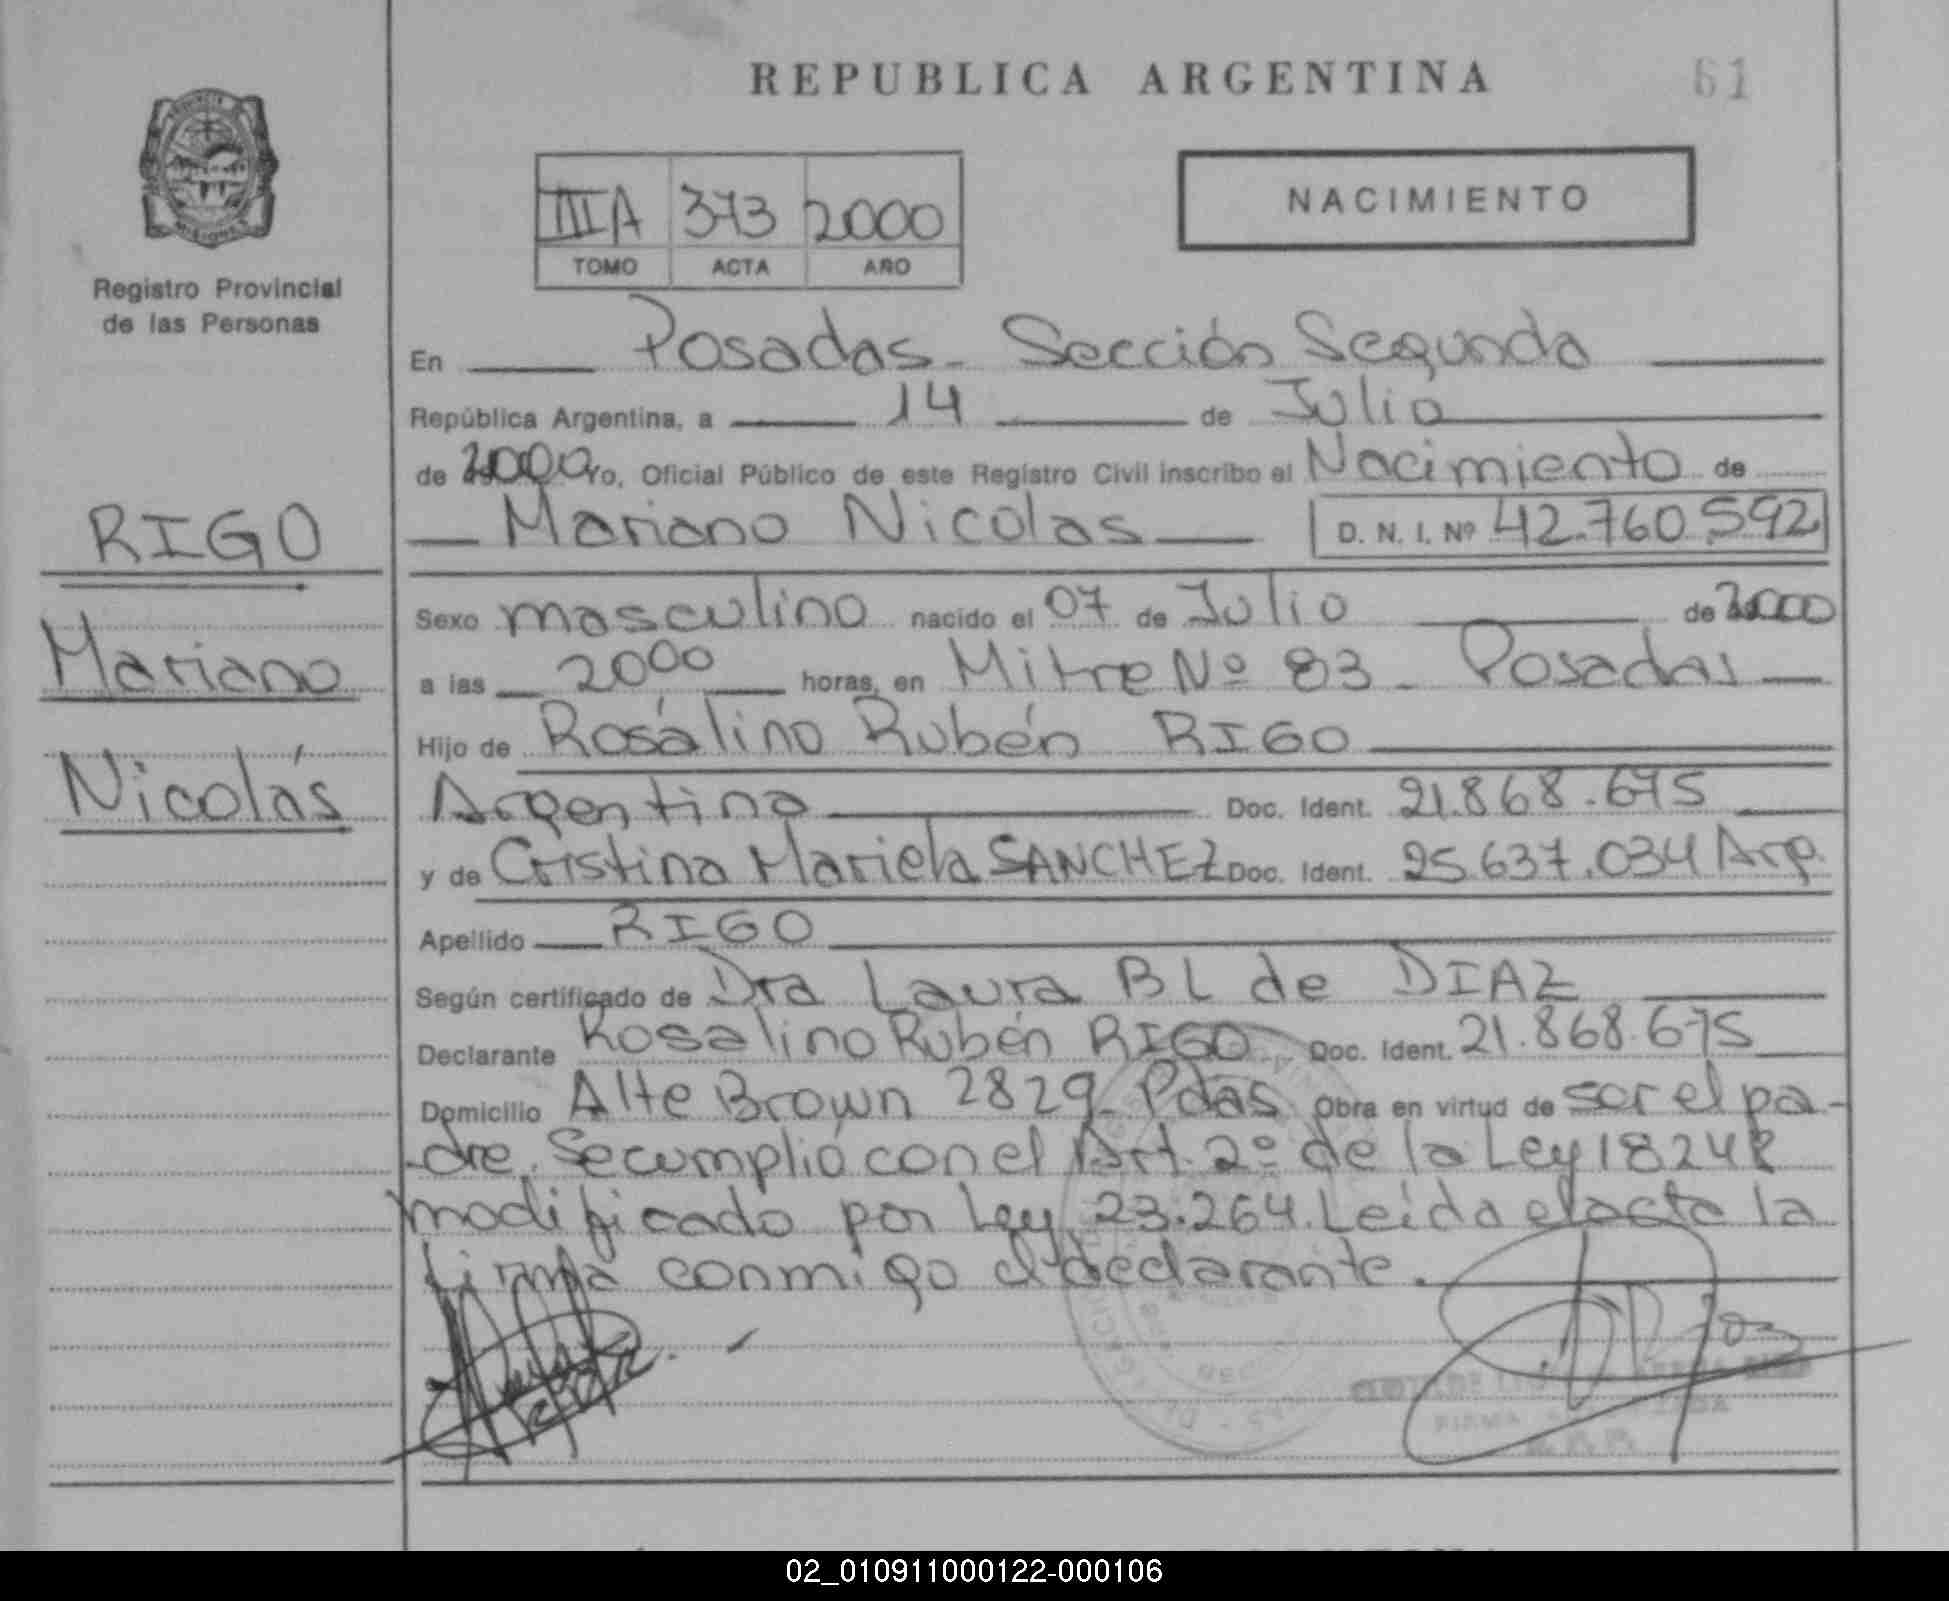 REPUBLICA ARGENTINA
61
NACIMIENTO
IIIA 373 2000
TOMO ACTA AÑO
Registro Provincial
de las Personas
RIGO
Mariano
Nicolás
En Posadas - Sección Segunda
República Argentina, a 14 de Julio
de 2000 Yo, Oficial Público de este Registro Civil inscribo el Nacimiento de
Mariano Nicolas D. N. I. Nº 42.760.592
Sexo masculino nacido el 07 de Julio de 2000
a las 2000 horas, en Mitre Nº 83 - Posadas
Hijo de Rosalino Rubén RIGO
Argentina Doc. Ident. 21.868.675
y de Cristina Mariela SANCHEZ Doc. Ident. 25.637.034 Arg.
Apellido RIGO
Según certificado de Dra Laura B L de DIAZ
Declarante Rosalino Rubén RIGO Doc. Ident. 21.868.675
Domicilio Alte Brown 2829 - Pdas Obra en virtud de ser el pa-
dre. Se cumplió con el Art. 2º de la Ley 18248
modificado por Ley 23.264. Leída el acta la
firma conmigo el declarante.
FIRMA
02_010911000122-000106